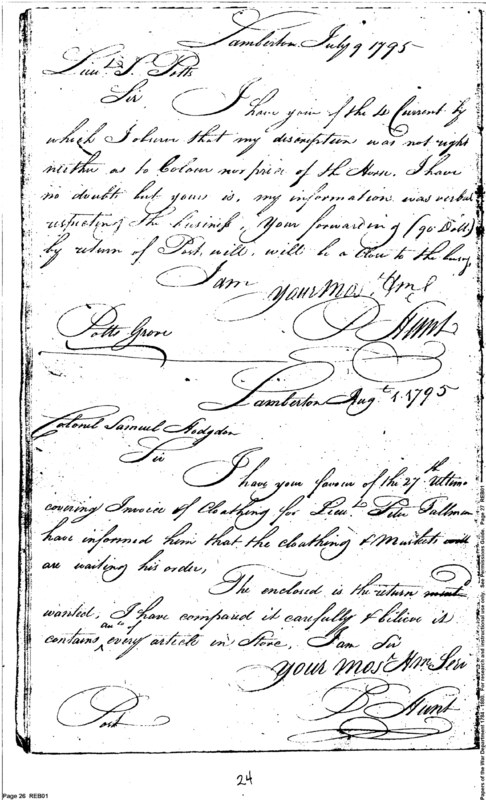 Lamberton July 9 1795
Lieut. J. Potts
Sir I have your of the 4 Current by
which I observe that my description was not right
neither as to Colour nor price of th Horse. I have
no doubt but yours is, my information was verbal
respecting the business, Your forwarding (90 Dolls)
by return of Post, will, will be a Close to the
I am
your Mos. Hml
D Hunt
Potts Grove
Lamberton Augt. 1. 1795
Colonel Samuel Hodgdon
Sir
I have your favour of the 27th Ultimo
covering Invoice of Cloathing for Lieut. Peter Tallman
have informed him that the cloathing & Muskets
are waiting his order,
The enclosed is the return
wanted, I have compared it carefully & believe it
contains every article in Store. I am Sir
your Most Hm Serv
D Hunt
Post
24
Page 26 REB01